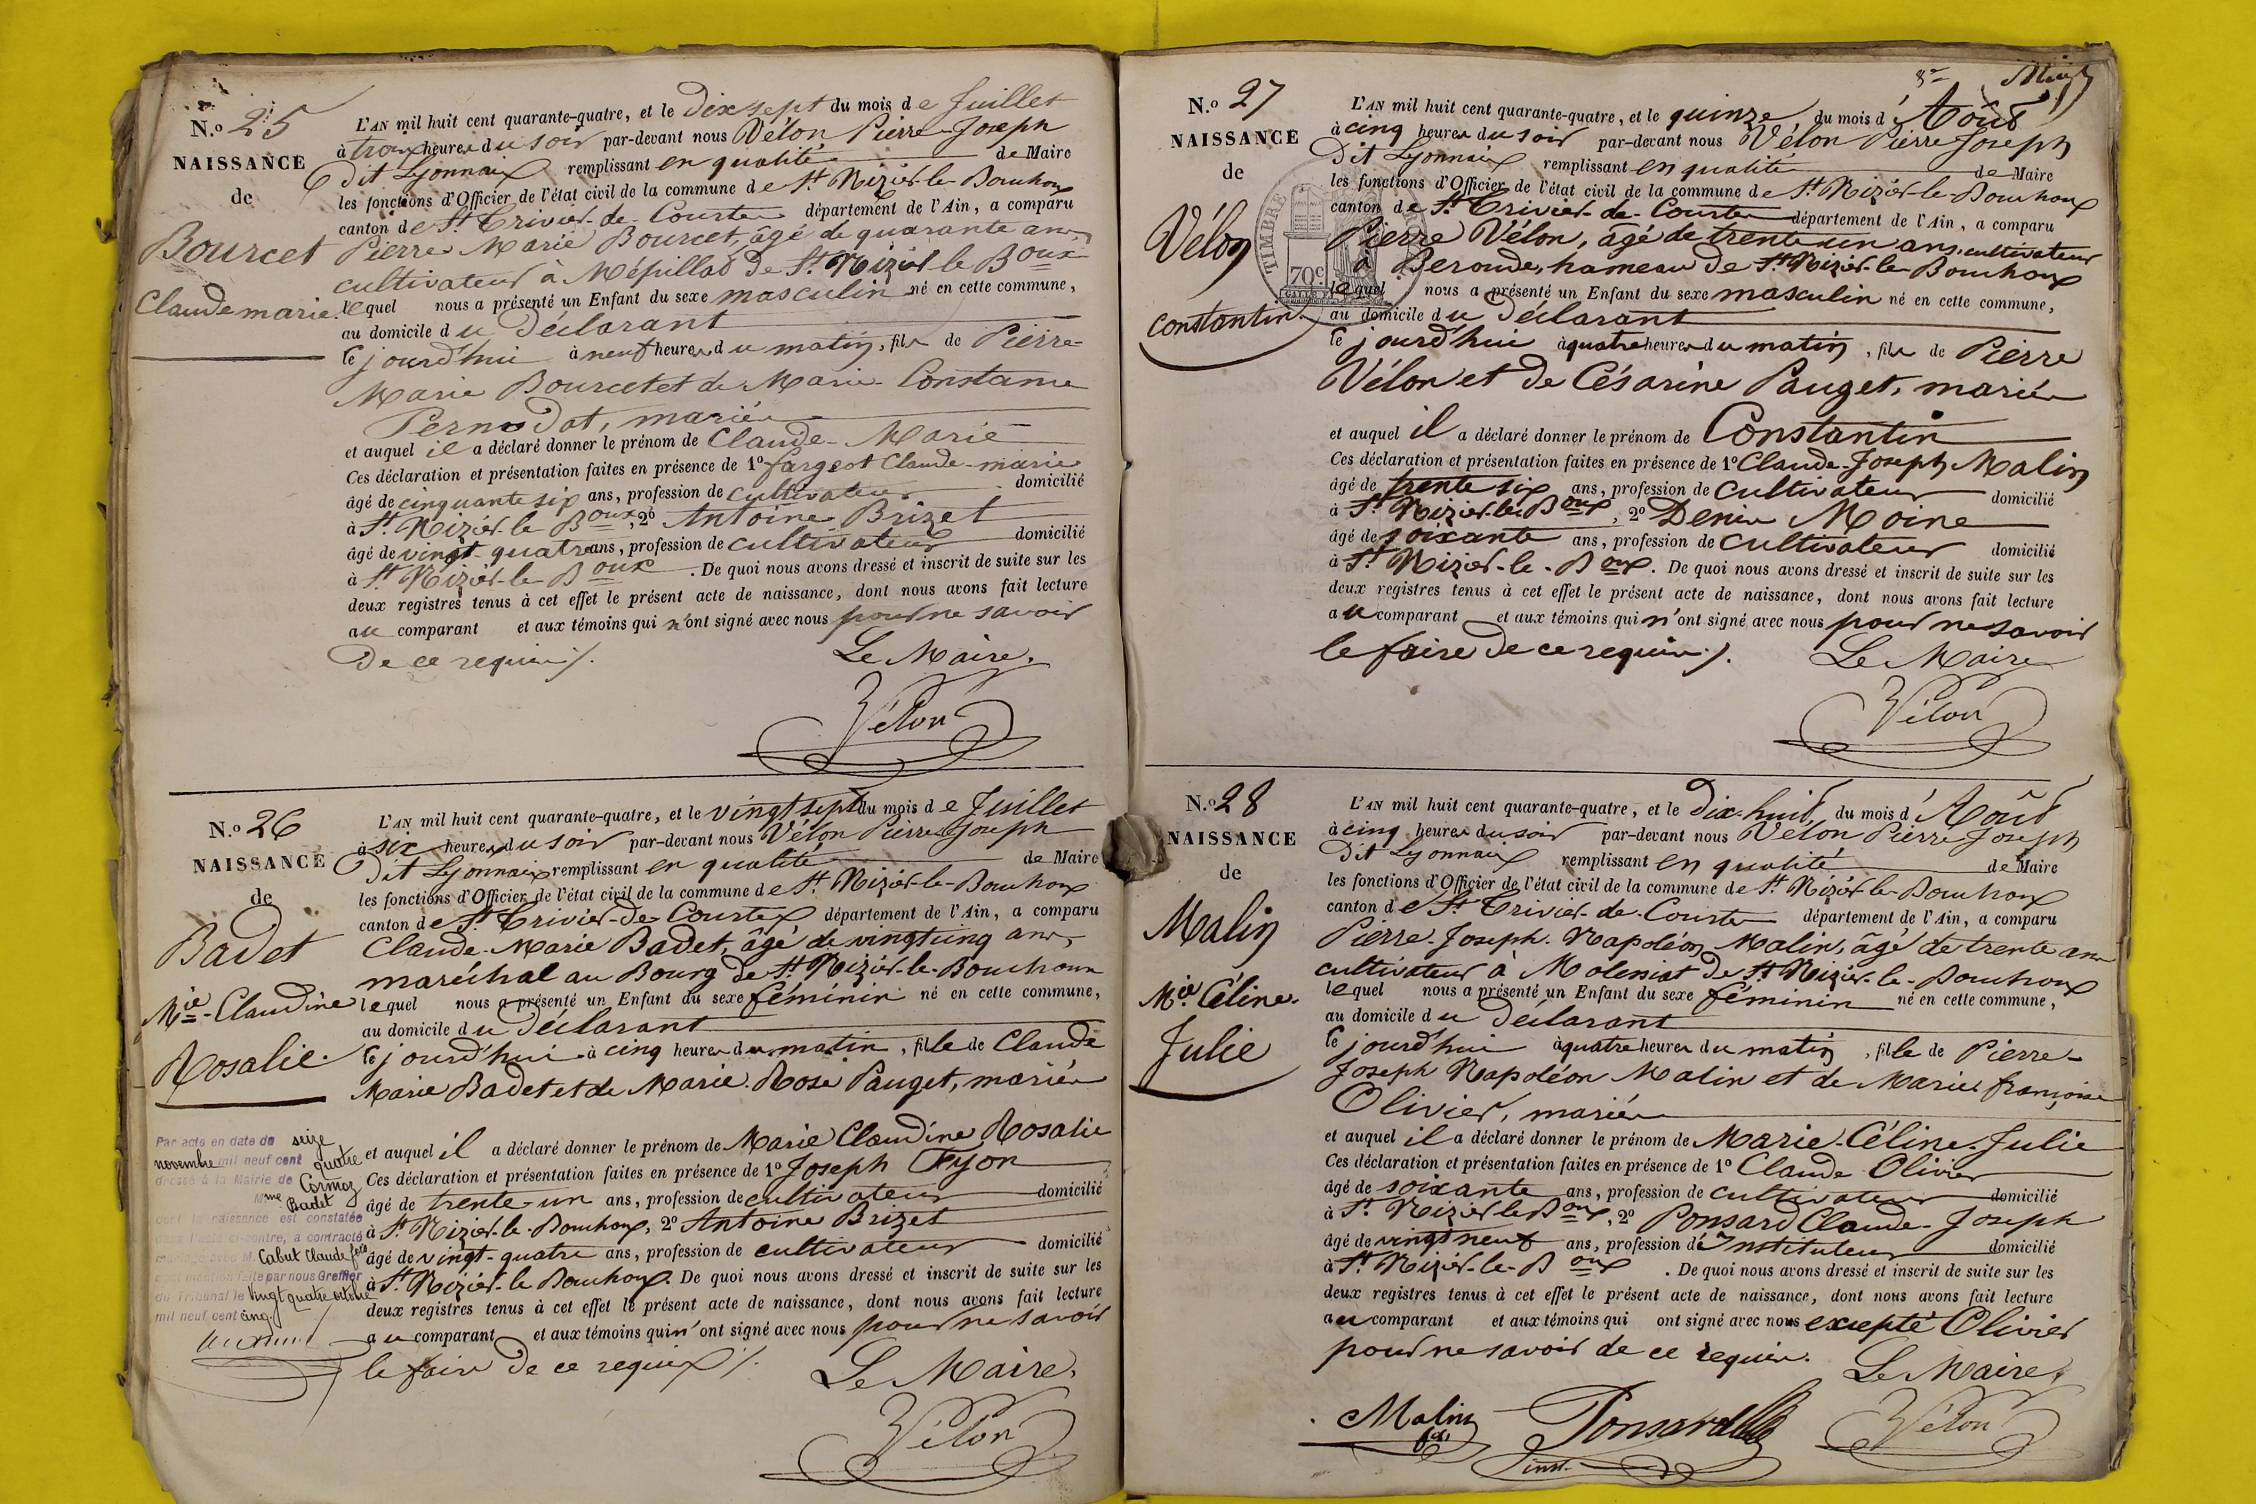 N.o 25
NAISSANCE
de
Bourcet
Claude marie.
L'AN mil huit cent quarante-quatre, et le Dix sept du mois de Juillet
à trois heures du soir par-devant nous Vélon Pierre-Joseph
Dit Lyonnais remplissant en qualité de Maire
les fonctions d'Officier de l'état civil de la commune de St. Nizier-le-Bouhoux
canton de St. Trivier-de-Courtes département de l'Ain, a comparu
Pierre Marie Bourcet, âgé de quarante ans
cultivateur à Mépillat de St. Nizier le Boux
lequel nous a présenté un Enfant du sexe masculin né en cette commune,
au domicile du Déclarant
le jourd'hui à neuf heures du matin, fils de Pierre
Marie Bourcet et de Marie Constance
Pernodat, mariés
et auquel il a déclaré donner le prénom de Claude-Marie
Ces déclaration et présentation faites en présence de 1o fargeot Claude-marie
âgé de cinquante six ans, profession de cultivateur domicilié
à St. Nizier-le Boux, 2o Antoine Brizet
âgé de vingt quatre ans, profession de cultivateur domicilié
à St. Nizier-le-Boux. De quoi nous avons dressé et inscrit de suite sur les
deux registres tenus à cet effet le présent acte de naissance, dont nous avons fait lecture
au comparant et aux témoins qui n'ont signé avec nous pour ne savoir
De ce requis ./.
Le Maire,
Vélon
N.o 26
NAISSANCE
de
Badet
Mie-Claudine
Rosalie.
Par acte en date du seize
novembre mil neuf cent quatre
dressé à la Mairie de Cormoz
Mme Badet
dont la naissance est constatée
dans l'acte ci-contre, a contracté
mariage avec M. Cabut Claude félix
dont mention faite par nous Greffier
du Tribunal le vingt quatre octobre
mil neuf cent cinq.
L'AN mil huit cent quarante-quatre, et le vingt sept du mois de Juillet
à six heures du soir par-devant nous Vélon Pierre Joseph
Dit Lyonnais remplissant en qualité de Maire
les fonctions d'Officier de l'état civil de la commune de St. Nizier-le-Bouhoux
canton de St. Trivier-de-Courtes département de l'Ain, a comparu
Claude-Marie Badet, âgé de vingt cinq ans,
maréchal au Bourg de St. Nizier-le-Bouhoux
lequel nous a présenté un Enfant du sexe féminin né en cette commune,
au domicile du Déclarant
le jourd'hui à cinq heures du matin, fille de Claude
Marie Badet et de Marie-Rose Pauget, mariés
et auquel il a déclaré donner le prénom de Marie Claudine Rosalie
Ces déclaration et présentation faites en présence de 1o Joseph Fyon
âgé de trente-un ans, profession de cultivateur domicilié
à St. Nizier-le-Bouhoux, 2o Antoine Brizet
âgé de vingt-quatre ans, profession de cultivateur domicilié
à St. Nizier-le Bouhoux. De quoi nous avons dressé et inscrit de suite sur les
deux registres tenus à cet effet le présent acte de naissance, dont nous avons fait lecture
au comparant et aux témoins qui n'ont signé avec nous pour ne savoir
le faire de ce requis ./.
Le Maire,
Vélon
N.o 27
NAISSANCE
de
Vélon
constantin.
TIMBRE
70c
L'AN mil huit cent quarante-quatre, et le quinze du mois d'Août
à cinq heures du soir par-devant nous Vélon Pierre Joseph
Dit Lyonnais remplissant en qualité de Maire
les fonctions d'Officier de l'état civil de la commune de St. Nizier-le-Bouhoux
canton de St. Trivier-de-Courtes département de l'Ain, a comparu
Pierre Vélon, âgé de trente un ans, cultivateur
à Beroude, hameau de St. Nizier-le-Bouhoux
lequel nous a présenté un Enfant du sexe masculin né en cette commune,
au domicile du Déclarant
le jourd'hui à quatre heures du matin, fils de Pierre
Vélon et de Césarine Pauget, mariés
et auquel il a déclaré donner le prénom de Constantin
Ces déclaration et présentation faites en présence de 1o Claude-Joseph Malin
âgé de trente six ans, profession de cultivateur domicilié
à St. Nizier-le-Boux, 2o Denis Moine
âgé de soixante ans, profession de cultivateur domicilié
à St. Nizier-le-Boux. De quoi nous avons dressé et inscrit de suite sur les
deux registres tenus à cet effet le présent acte de naissance, dont nous avons fait lecture
au comparant et aux témoins qui n'ont signé avec nous pour ne savoir
le faire de ce requis ./.
Le Maire
Vélon
N.o 28
NAISSANCE
de
Malin
Mie Céline.
Julie
L'AN mil huit cent quarante-quatre, et le Dix-huit du mois d'Août
à cinq heures du soir par-devant nous Vélon Pierre Joseph
Dit Lyonnais remplissant en qualité de Maire
les fonctions d'Officier de l'état civil de la commune de St. Nizier-le-Bouhoux
canton de St. Trivier-de-Courtes département de l'Ain, a comparu
Pierre-Joseph-Napoléon Malin, âgé de trente ans
cultivateur à Molessiat de St. Nizier-le-Bouhoux
lequel nous a présenté un Enfant du sexe féminin né en cette commune,
au domicile du Déclarant
le jourd'hui à quatre heures du matin, fille de Pierre-
Joseph Napoléon Malin et de Marie françoise
Olivier, mariés
et auquel il a déclaré donner le prénom de Marie-Céline-Julie
Ces déclaration et présentation faites en présence de 1o Claude Olivier
âgé de soixante ans, profession de cultivateur domicilié
à St. Nizier le Boux, 2o Ponsard Claude-Joseph
âgé de vingt neuf ans, profession d'Instituteur domicilié
à St. Nizier-le-Boux. De quoi nous avons dressé et inscrit de suite sur les
deux registres tenus à cet effet le présent acte de naissance, dont nous avons fait lecture
au comparant et aux témoins qui ont signé avec nous excepté Olivier
pour ne savoir de ce requis.
Le Maire,
Malin
Ponsard
inst.
Vélon